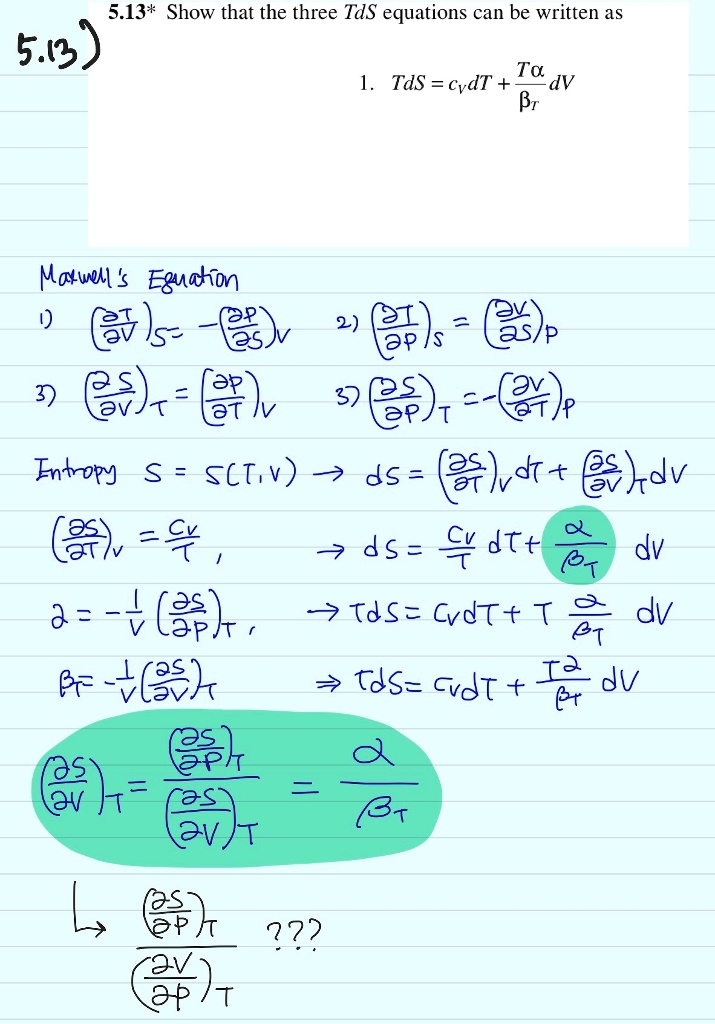 5.13* Show that the three TdS equations can be written as
5.13)
1. TdS = c_V dT + Tα/β_T dV
Maxwell's Equation
1) (∂T/∂V)_S = -(∂P/∂S)_V 2) (∂T/∂P)_S = (∂V/∂S)_P
3) (∂S/∂V)_T = (∂P/∂T)_V 3) (∂S/∂P)_T = -(∂V/∂T)_P
Entropy S = S(T,V) → dS = (∂S/∂T)_V dT + (∂S/∂V)_T dV
(∂S/∂T)_V = C_V/T , → dS = C_V/T dT + α/β_T dV
α = -1/V (∂S/∂P)_T , → TdS = C_V dT + T α/β_T dV
β_T = -1/V (∂S/∂V)_T ⇒ TdS = C_V dT + Tα/β_T dV
(∂S/∂V)_T = (∂S/∂P)_T / (∂S/∂V)_T = α/β_T
↳ (∂S/∂P)_T / (∂V/∂P)_T ???